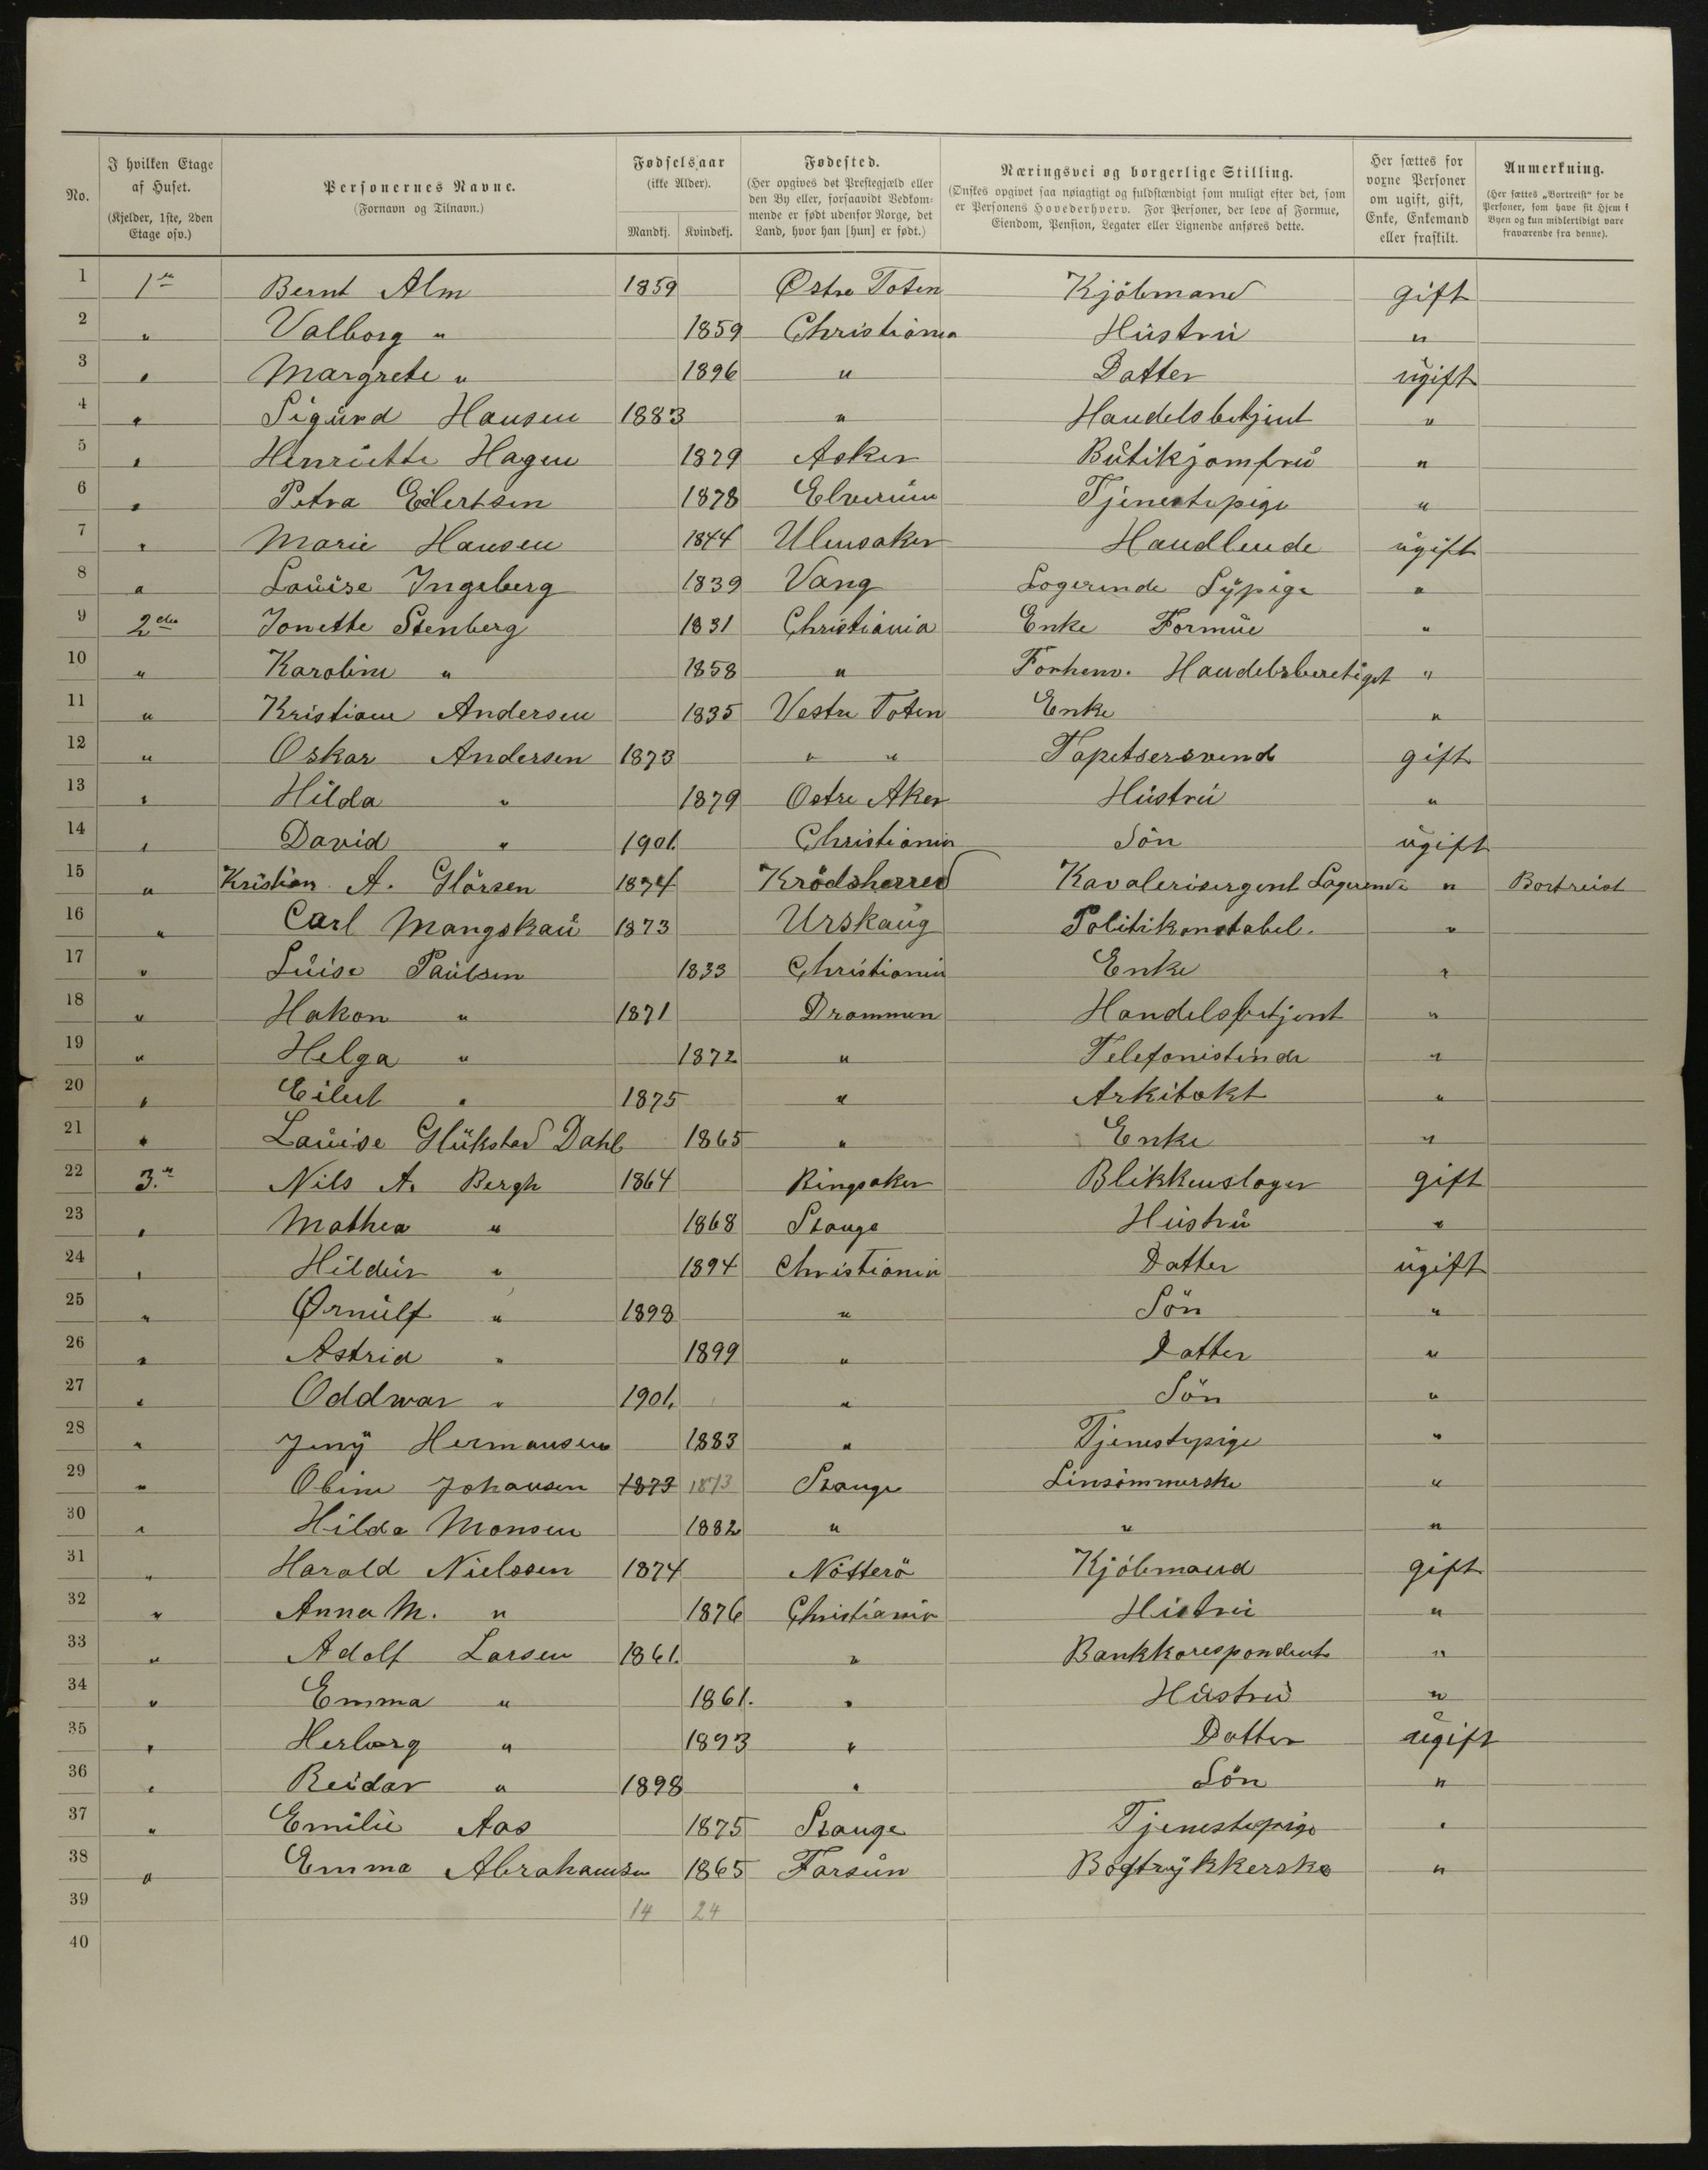 No. | I hvilken Etage af Huset. (Kjelder, 1ste, 2den Etage osv.) | Personernes Navne. (Fornavn og Tilnavn.) | Fødselsaar (ikke Alder). Mandkj. | Kvindekj. | Fødested. (Her opgives det Prestegjæld eller den By eller, forsaavidt Vedkommende er født udenfor Norge, det Land, hvor han [hun] er født.) | Næringsvei og borgerlige Stilling. (Ønskes opgivet saa nøiagtigt og fuldstændigt som muligt efter det, som er Personens Hovederhverv. For Personer, der leve af Formue, Eiendom, Pension, Legater eller Lignende anføres dette.) | Her sættes for voxne Personer om ugift, gift, Enke, Enkemand eller fraskilt. | Anmerkning. (Her sættes „Bortreist“ for de Personer, som have sit Hjem i Byen og kun midlertidigt være fraværende fra denne).
1 | 1ste | Bernt Alm | 1859 | | Østre Toten | Kjöbmand | gift
2 | " | Valborg " | | 1859 | Christiania | Hustru | "
3 | " | Margrete " | | 1896 | " | Datter | ugift
4 | " | Sigurd Hansen | 1883 | | " | Handelsbetjent | "
5 | " | Henriette Hagen | | 1879 | Asker | Butikjomfru | "
6 | " | Petra Eilertsen | | 1878 | Elverum | Tjenestepige | "
7 | " | Marie Hansen | | 1844 | Ulensaker | Handlende | ugift
8 | " | Louise Ingeberg | | 1839 | Vang | Logerende Sypige | "
9 | 2den | Jonette Stenberg | | 1831 | Christiania | Enke Formue | "
10 | " | Karoline " | | 1858 | " | Forhenv. Handelsberetiget | "
11 | " | Kristiane Andersen | | 1835 | Vestre Toten | Enke | "
12 | " | Oskar Andersen | 1873 | | " " | Tapetsersvend | gift
13 | " | Hilda " | | 1879 | Ostre Aker | Hustru | "
14 | " | David " | 1901. | | Christiania | Sön | ugift
15 | " | Kristian A. Glörsen | 1874 | | Krödsherred | Kavalerisergent Logerende | " | Bortreist
16 | " | Carl Mangskau | 1873 | | Urskaug | Politikonstabel. | "
17 | " | Luise Paulsen | | 1833 | Christiania | Enke | "
18 | " | Hakon " | 1871 | | Drammen | Handelsbetjent | "
19 | " | Helga " | | 1872 | " | Telefonistinde | "
20 | " | Eilert " | 1875 | | " | Arkitekt | "
21 | " | Louise Glükstad Dahl | | 1865 | " | Enke | "
22 | 3." | Nils A. Bergh | 1864 | | Ringsaker | Blikkenslager | gift
23 | " | Mathea " | | 1868 | Stange | Hustru | "
24 | " | Hildur " | | 1894 | Christiania | Datter | ugift
25 | " | Ørnulf " | 1898 | | " | Sön | "
26 | " | Astrid " | | 1899 | " | Datter | "
27 | " | Oddwar " | 1901. | | " | Sön | "
28 | " | Jeny Hermansen | | 1883 | " | Tjenestepige | "
29 | " | Oline Johansen | 1873 | 1873 | Stange | Linsömmerske | "
30 | " | Hilda Monsen | | 1882 | " | " | "
31 | " | Harald Nielssen | 1874 | | Nötterö | Kjöbmand | gift
32 | " | Anna M. " | | 1876 | Christiania | Hustru | "
33 | " | Adolf Larsen | 1861. | | " | Bankkorespondent | "
34 | " | Emma " | | 1861. | " | Hustru | "
35 | " | Herborg " | | 1893 | " | Datter | ugift
36 | " | Reidar " | 1898 | | " | Sön | "
37 | " | Emilie Aas | | 1875 | Stange | Tjenestepige | "
38 | " | Emma Abrahamsen | | 1865 | Farsun | Bogtrykkerske | "
39 | | | 14 | 24
40